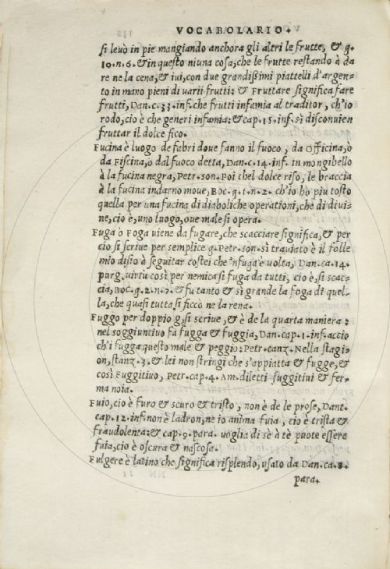 VOCABOLARIO.
si levò in pie mangiando anchora gli altri le frutte, & g.
10. n. 6. & in questo niuna cosa, che le frutte restando à da
re ne la cena, & ivi, con due grandißimi piattelli d'argen
to in mano pieni di varii frutti: & Fruttare significa fare
frutti, Dan. c. 33. inf. che frutti infamia al traditor, ch'io
rodo, cio è che generi infamia; & cap. 15. inf. sì disconvien
fruttar il dolce fico.
Fucina è luogo de fabri dove fanno il fuoco, da Officina, o
da Fiscina, o dal fuoco detta, Dan. c. 14. inf. in mongibello
à la fucina negra, Petr. son. Poi che'l dolce riso, le braccia
à la fucina indarno move, Boc. g. 1. n. 2. ch'io hò piu tosto
quella per una fucina di diaboliche operationi, che di divi-
ne, cio è, uno luogo, ove male si opera.
Fuga ò Foga viene da fugare, che scacciare significa, & per
cio si scrive per semplice g. Petr. son. sì traviato è il folle
mio disio à seguitar costei che 'n fuga è volta, Dan. ca. 14.
purg. virtù così per nemica si fuga da tutti, cio è, si scac-
cia, Boc. g. 2. n. 7. & fu tanto & sì grande la foga di quel-
la, che quasi tutta si ficcò ne la rena.
Fuggo per doppio g si scrive, & è de la quarta maniera:
nel soggiuntivo fà fugga & fuggia, Dan. cap. 1. inf. accio
ch'i fugga questo male & peggio: Petr. canz. Nella stagi-
on, stanz. 3. & lei non stringi che s'appiatta & fugge, &
così Fuggitivo, Petr. cap. 4. Am. diletti fuggitivi & fer-
ma noia.
Fuio, cio è furo & scuro & tristo, non è de le prose, Dant.
cap. 12. inf. non è ladron, ne io anima fuia, cio è trista &
fraudolenta: & cap. 9. para. voglia di sè à tè puote essere
fuia, cio è oscura & nascosa.
Fulgere è latino che significa risplendo, usato da Dan. ca. 8.
para.